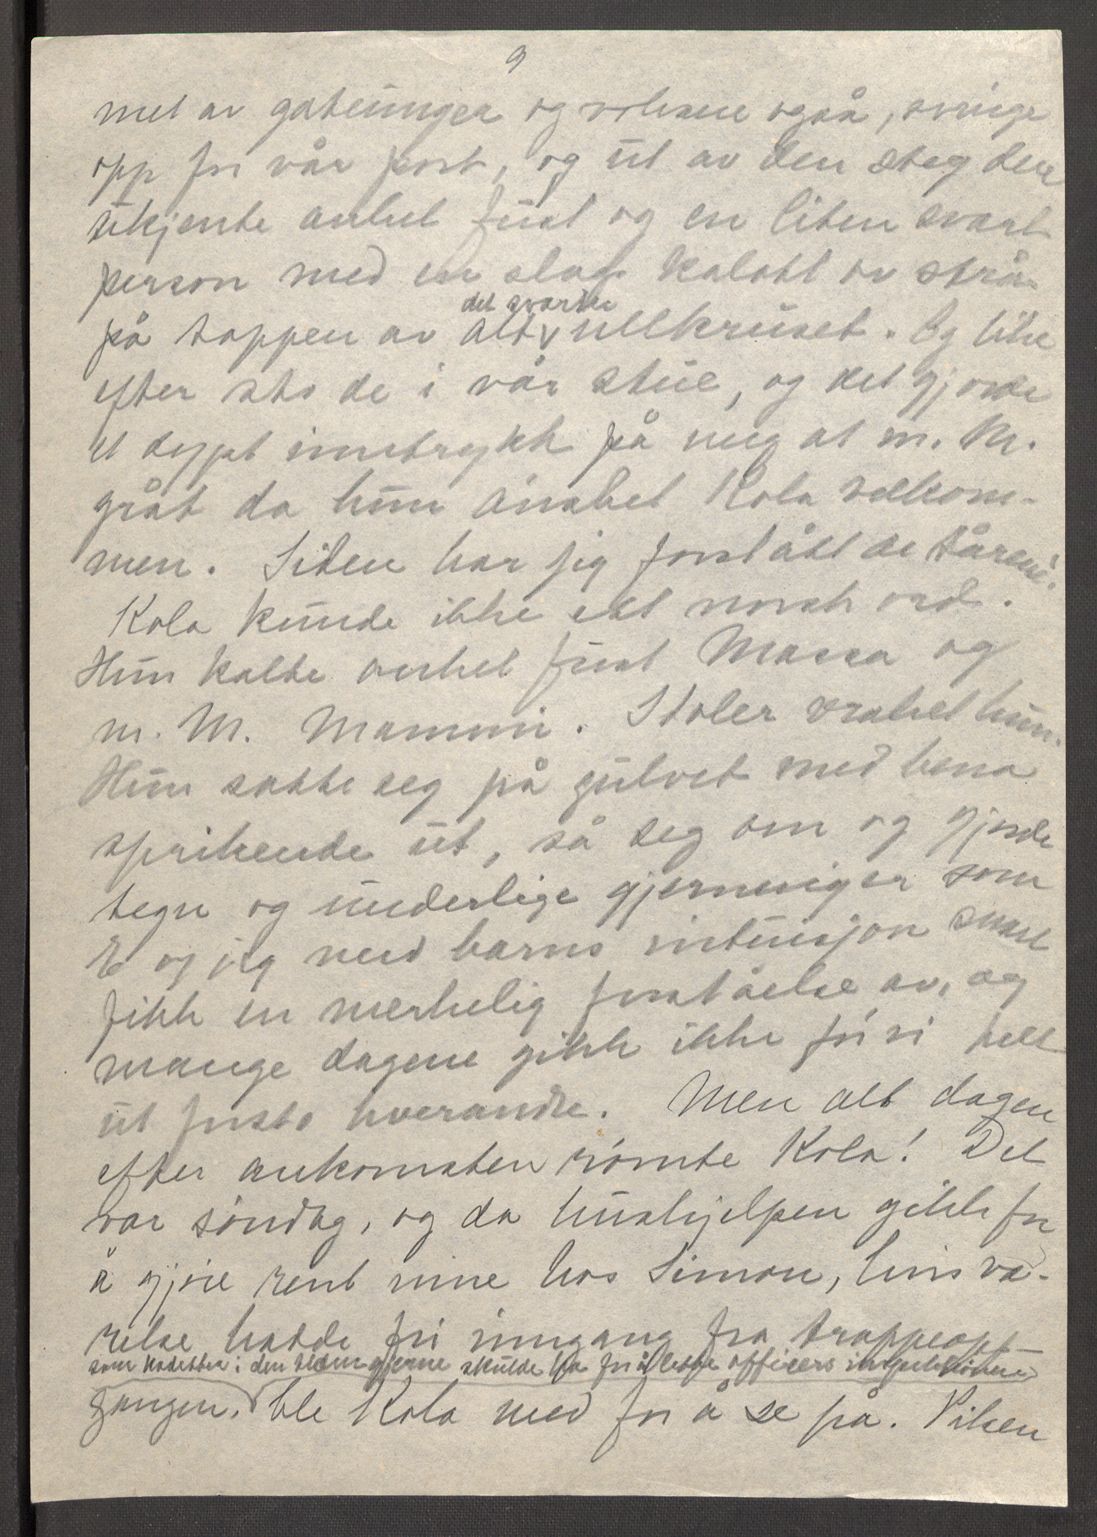 9
met av gateunger og voksne også, svinge
opp for vår port, og ut av den steg den
ukjente onkel Just og en liten svart
person med en slags kalott av strå
på toppen av alt det svarte ullkruset. Og like
efter sto de i vår stue, og det gjorde
et dypt inntrykk på meg at m. M.
gråt da hun ønsket Kola velkom-
men. Siden har jeg forstått de tårene.
Kola kunde ikke ett norsk ord.
Hun kalte onkel Just Massa og
m. M. Mammi. Stoler vraket hun.
Hun satte seg på gulvet med bena
sprikende ut, så seg om og gjorde
tegn og underlige gjerninger som
E og jeg med barns intuisjon snart
fikk en merkelig forståelse av, og
mange dagene gikk ikke før vi helt
ut forsto hverandre. Men alt dagen
efter ankomsten rømte Kola! Det
var søndag, og da hushjelpen gikk for
å gjøre rent inne hos Simon, hvis væ-
relse hadde fri inngang fra trappeopp-
som kadetter i den tiden gjerne skulde ha for å slippe officers inspeksjonene
gangen, ble Kola med for å se på. Piken